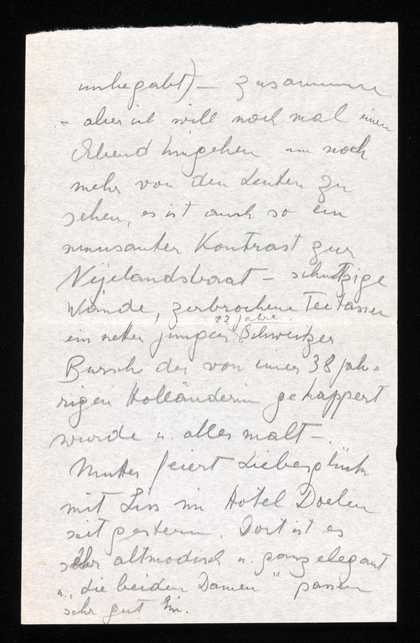 unbegabt) – zusammen
– aber ich will noch mal einen
Abend hingehen um noch
mehr von den Leuten zu
sehen, es ist auch so ein
amusanter Kontrast zur
– schmutzige
Wände, zerbrochene Teetassen
22 jähr.
ein netter junger Schweizer
Bursche der von einer 38 jäh-
rigen Holländerin gekappert
wurde u. alles malt –.
Mutter feiert Liebesglück
mit Liss im Hotel Doelen
seit gestern. Dort ist es
sehr altmodisch u. ganz elegant
u. "die beiden Damen" passen
sehr gut hin.